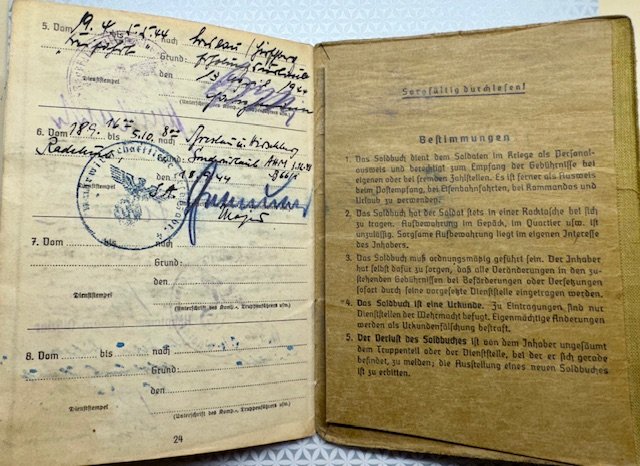 5. Vom 19.4. bis 5.5.44 nach Breslau / Hirschberg
Grund: Erholungsurlaub
den 13 April 1944
Dienststempel
(Unterschrift des Komp.-, Truppenführers usw.)
6. Vom 18.9. 16 bis 5.10. 8 nach Breslau u. Hirschberg
Grund: Sonderurlaub
den 18.9.44
Major
7. Vom bis nach
Grund:
den
Dienststempel
(Unterschrift des Komp.-, Truppenführers usw.)
8. Vom bis nach
Grund:
den
Dienststempel
(Unterschrift des Komp.-, Truppenführers usw.)
24
Sorgfältig durchlesen!
Bestimmungen
1. Das Soldbuch dient dem Soldaten im Kriege als Personal-
ausweis und berechtigt zum Empfang der Gebührnisse bei
eigenen oder bei fremden Zahlstellen. Es ist ferner als Ausweis
beim Postempfang, bei Eisenbahnfahrten, bei Kommandos und
Urlaub zu verwenden.
2. Das Soldbuch hat der Soldat stets in einer Rocktasche bei sich
zu tragen. Aufbewahrung im Gepäck, im Quartier usw. ist
unzulässig. Sorgsame Aufbewahrung liegt im eigenen Interesse
des Inhabers.
3. Das Soldbuch muß ordnungsmäßig geführt sein. Der Inhaber
hat selbst dafür zu sorgen, daß alle Veränderungen in den zu-
stehenden Gebührnissen bei Beförderungen oder Versetzungen
sofort durch seine vorgesetzte Dienststelle eingetragen werden.
4. Das Soldbuch ist eine Urkunde. Zu Eintragungen sind nur
Dienststellen der Wehrmacht befugt. Eigenmächtige Änderungen
werden als Urkundenfälschung bestraft.
5. Der Verlust des Soldbuches ist von dem Inhaber ungesäumt
dem Truppenteil oder der Dienststelle, bei der er sich gerade
befindet, zu melden; die Ausstellung eines neuen Soldbuches
ist zu erbitten.